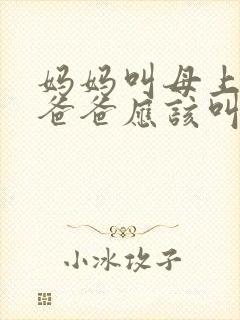 妈妈叫母上
爸爸应该叫
小冰孜子